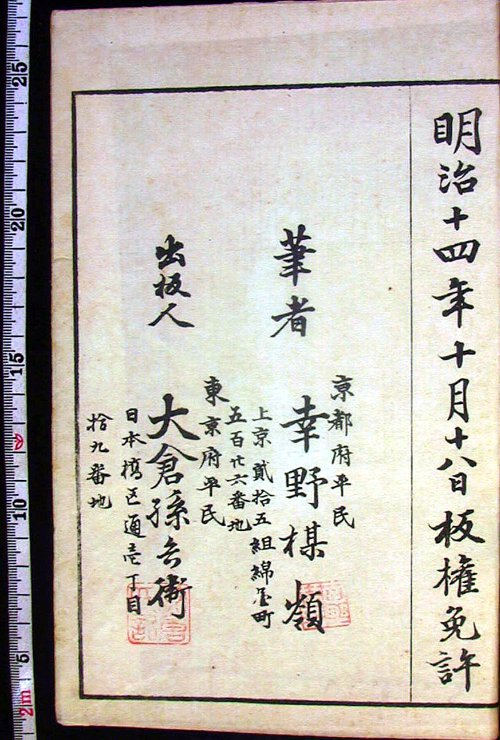 明治十四年十月十八日板權免許
筆者
京都府平民
幸野楳嶺
上京貳拾五組綿屋町
五百廿六番地
出板人
東京府平民
大倉孫兵衛
日本橋區通壱丁目
拾九番地
25
20
15
10
5
2m